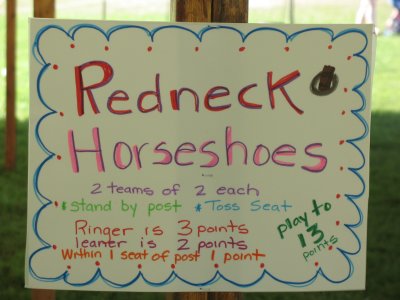 Redneck
Horseshoes
2 teams of 2 each
* Stand by post * Toss Seat
Ringer is 3 points
leaner is 2 points
Within 1 seat of post 1 point
play to
13
points